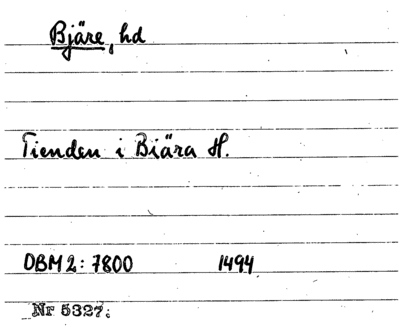 Bjäre, hd
Tienden i Biära H.
DBM 2: 7800 1494
Nr 5327.